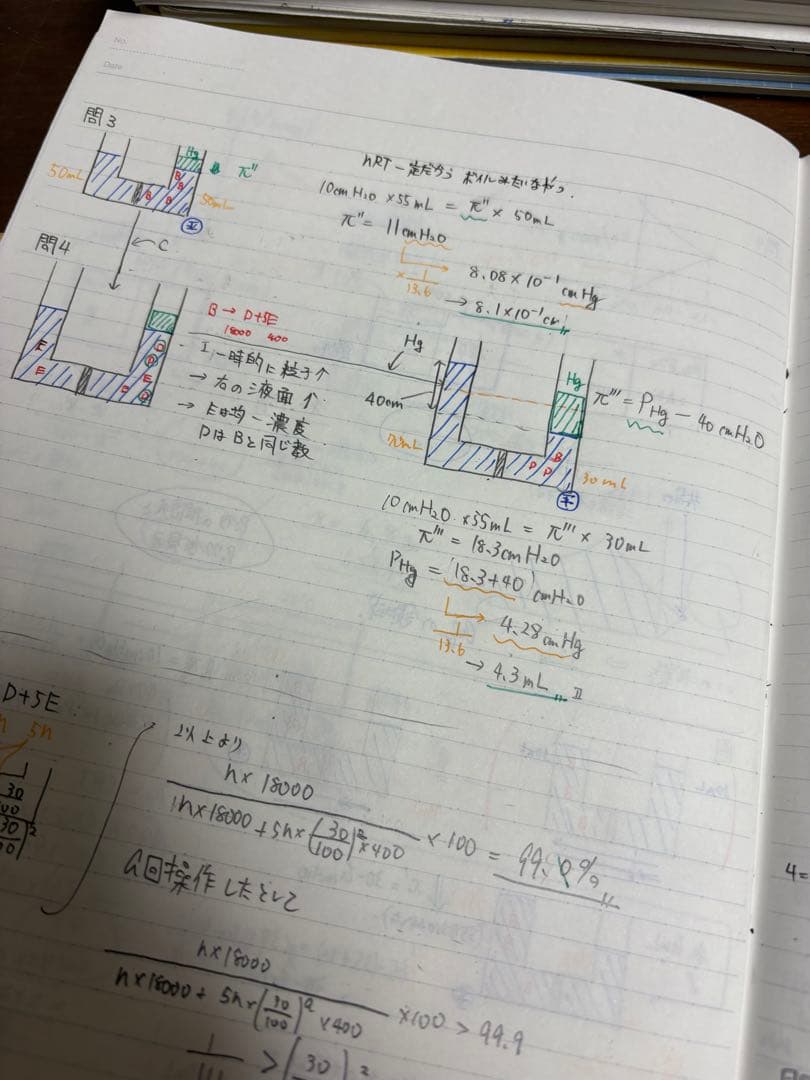 No.
Date
問3
50mL
Hg
π''
B
B
B
B
50mL
平
nRT一定だから ボイルみたいなやつ
10cmH₂O × 55mL = π'' × 50mL
π'' = 11cmH₂O
× 1/13.6
8.08×10⁻¹cmHg
→ 8.1×10⁻¹cm
C
問4
E
E
D
D
D
E
D
B → D+5E
18000 400
I, 一時的に粒子↑
→ 右の液面↑
→ Eは均一濃度
DはBと同じ数
Hg
40cm
Hg
π''' = P_Hg − 40cmH₂O
B
D
D
30mL
平
10cmH₂O × 55mL = π''' × 30mL
π''' = 18.3cmH₂O
P_Hg = (18.3+40)cmH₂O
1/13.6
4.28cmHg
→ 4.3mL
D+5E
5n
30
30
以上より
n×18000 / n×18000 + 5n×(30/100)²×400 ×100 = 99.0%
a回操作したとして
n×18000 / n×18000 + 5n×(30/100)^a ×400 ×100 > 99.9
4=